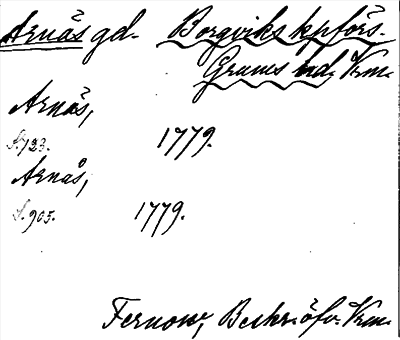 Arnäs gd. Borgviks kpförs.
Grums hd. Vrm.
Arnäs,
S. 723. 1779.
Arnås,
S. 905. 1779.
Fernow, Beskr. öfv. Vrm.